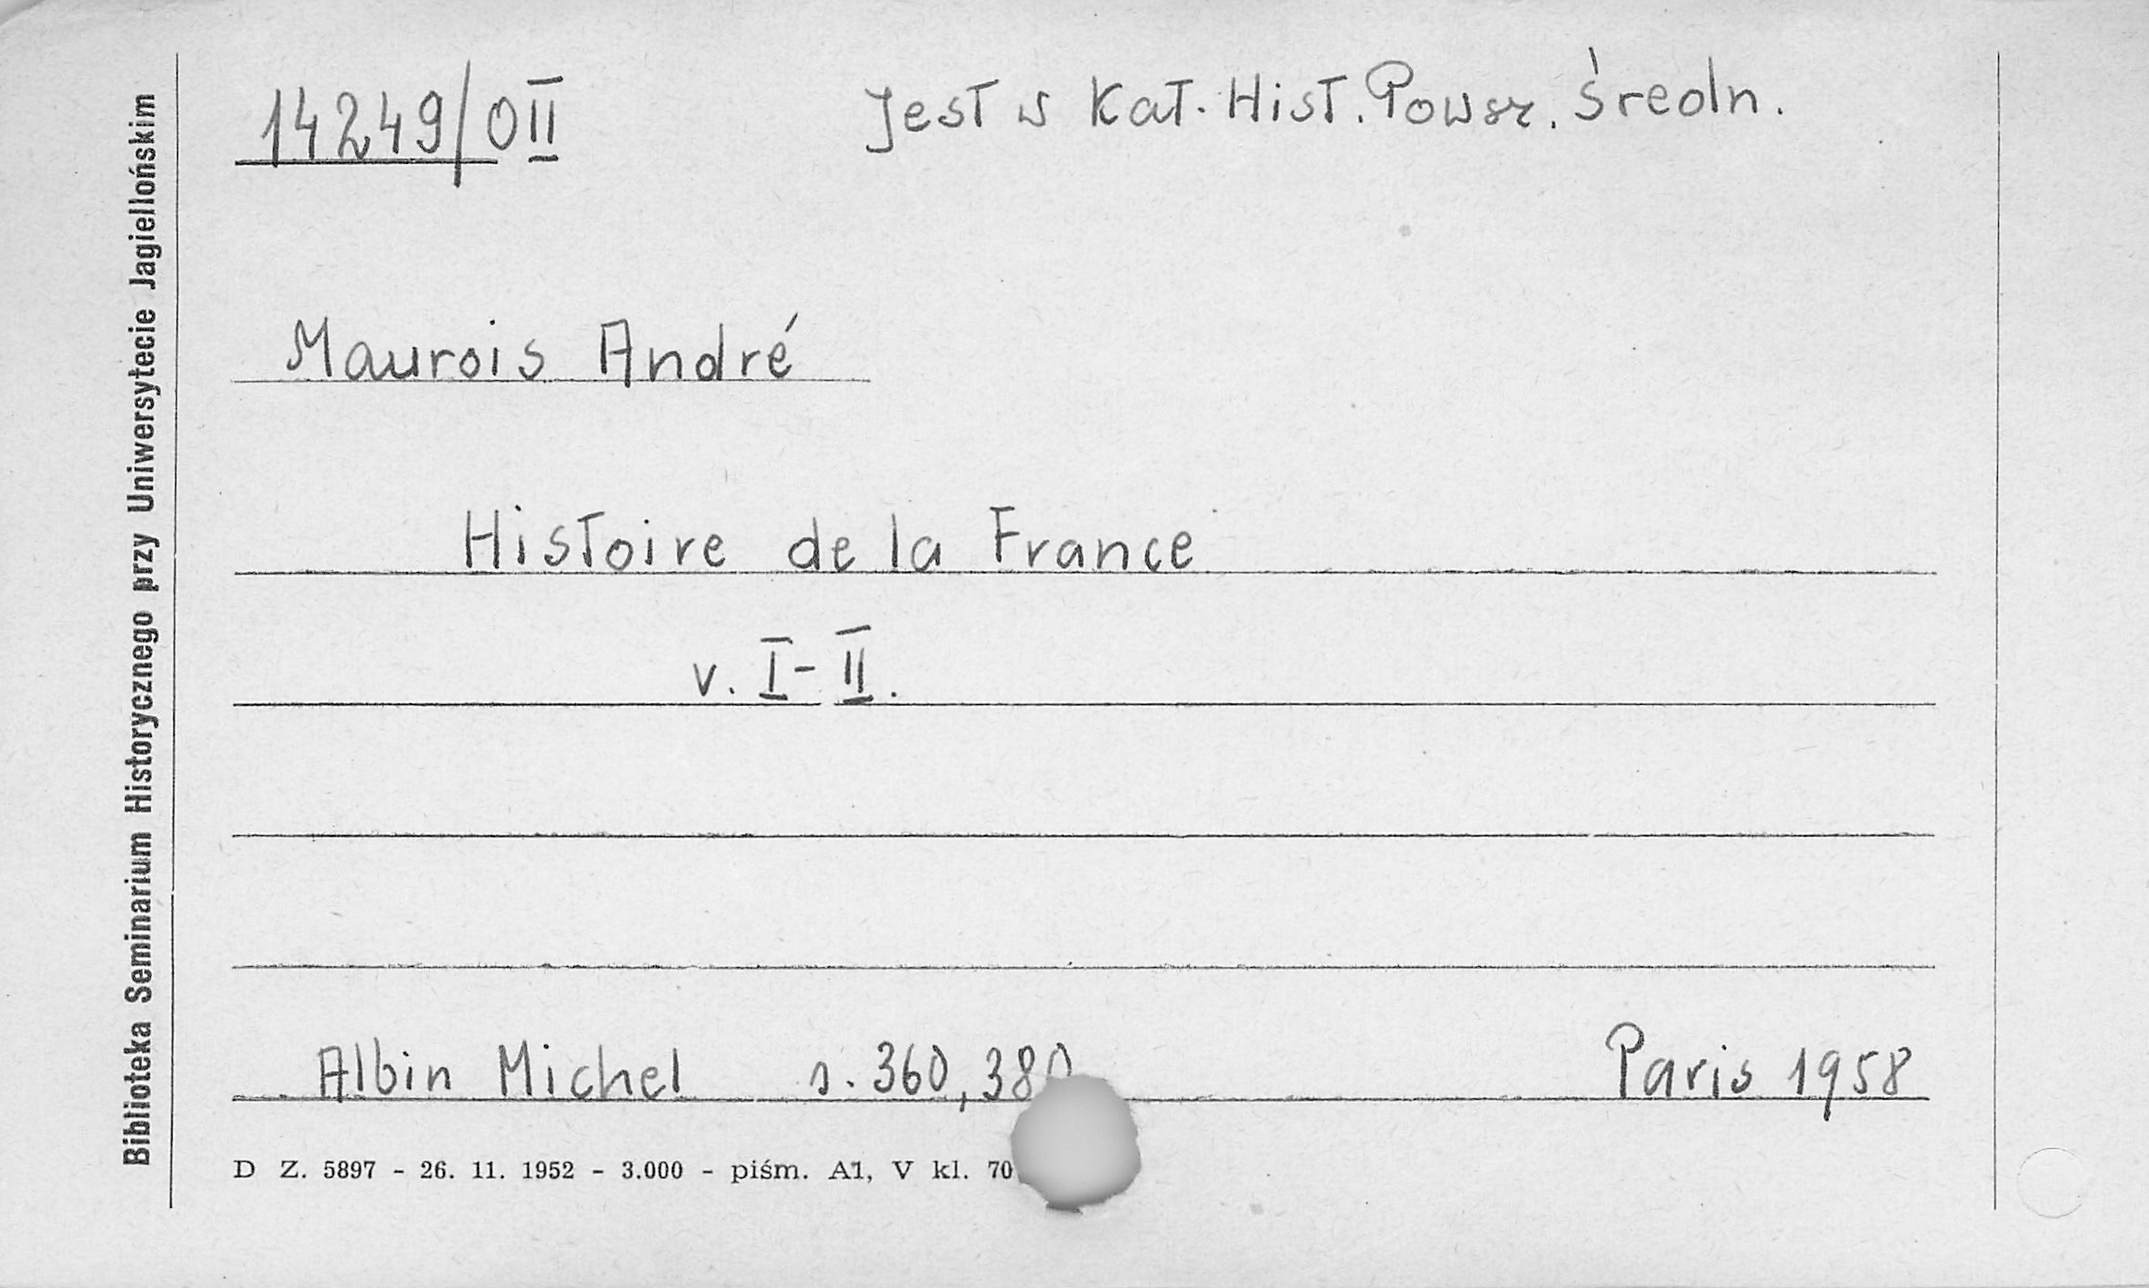 14249/OII
Jest w Kat. Hist. Powsz. Średn.
Maurois André
Histoire de la France
v. I-II.
Albin Michel s. 360, 380
Paris 1958
D Z. 5897 - 26. 11. 1952 - 3.000 - piśm. A1, V kl. 70
Biblioteka Seminarium Historycznego przy Uniwersytecie Jagiellońskim